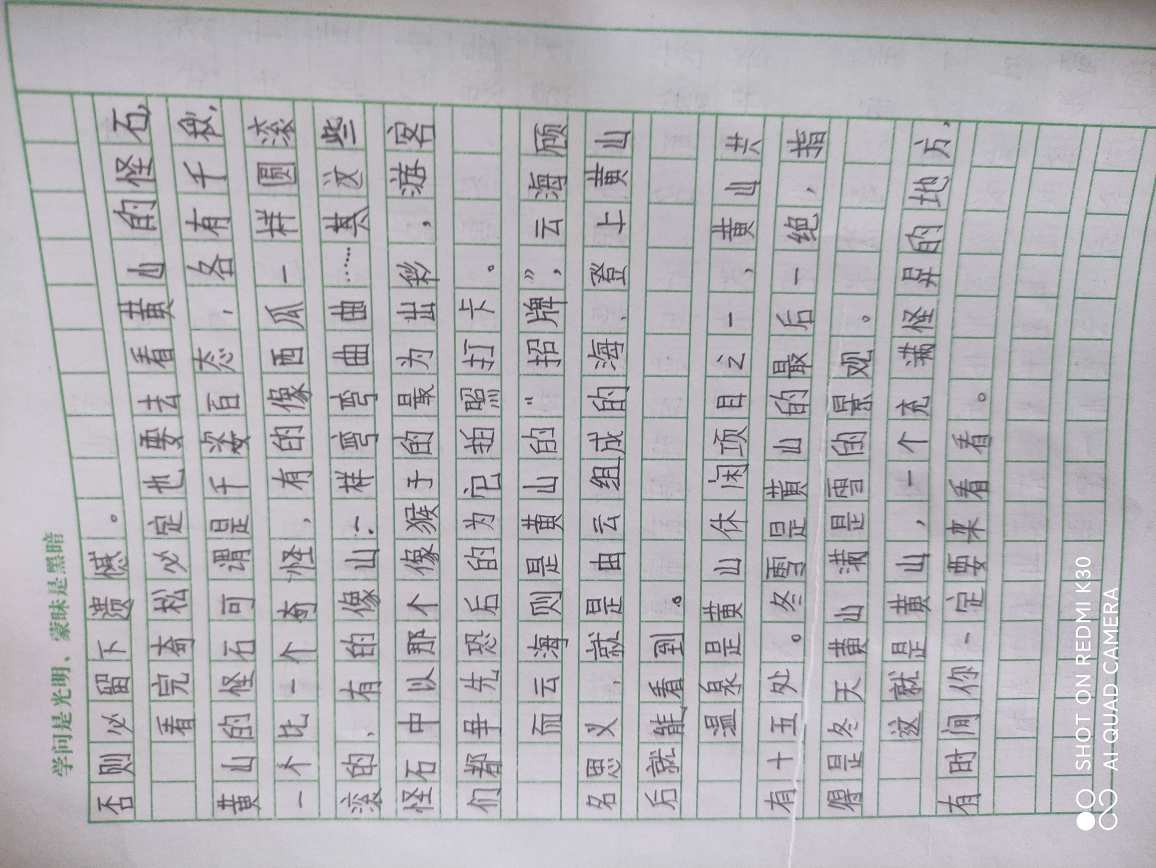 学问是光明，蒙昧是黑暗
否则必留下遗憾。
看完奇松必定也要去看黄山的怪石，
黄山的怪石可谓是千姿百态，各有千秋，
一个比一个奇怪，有的像西瓜一样圆滚
滚的，有的像山一样弯弯曲曲……其这些
怪石中以那个像猴子的最为出彩，游客
们都争先恐后的为它拍照打卡。
而云海则是黄山的“招牌”，云海顾
名思义，就是由云组成的海，登上黄山
后就能看到。
温泉是黄山休闲项目之一，黄山共
有十五处。冬雪是黄山的最后一绝，指
得是冬天黄山满是雪的景观。
这就是黄山，一个充满怪异的地方，
有时间你一定要来看看。
SHOT ON REDMI K30
AI QUAD CAMERA